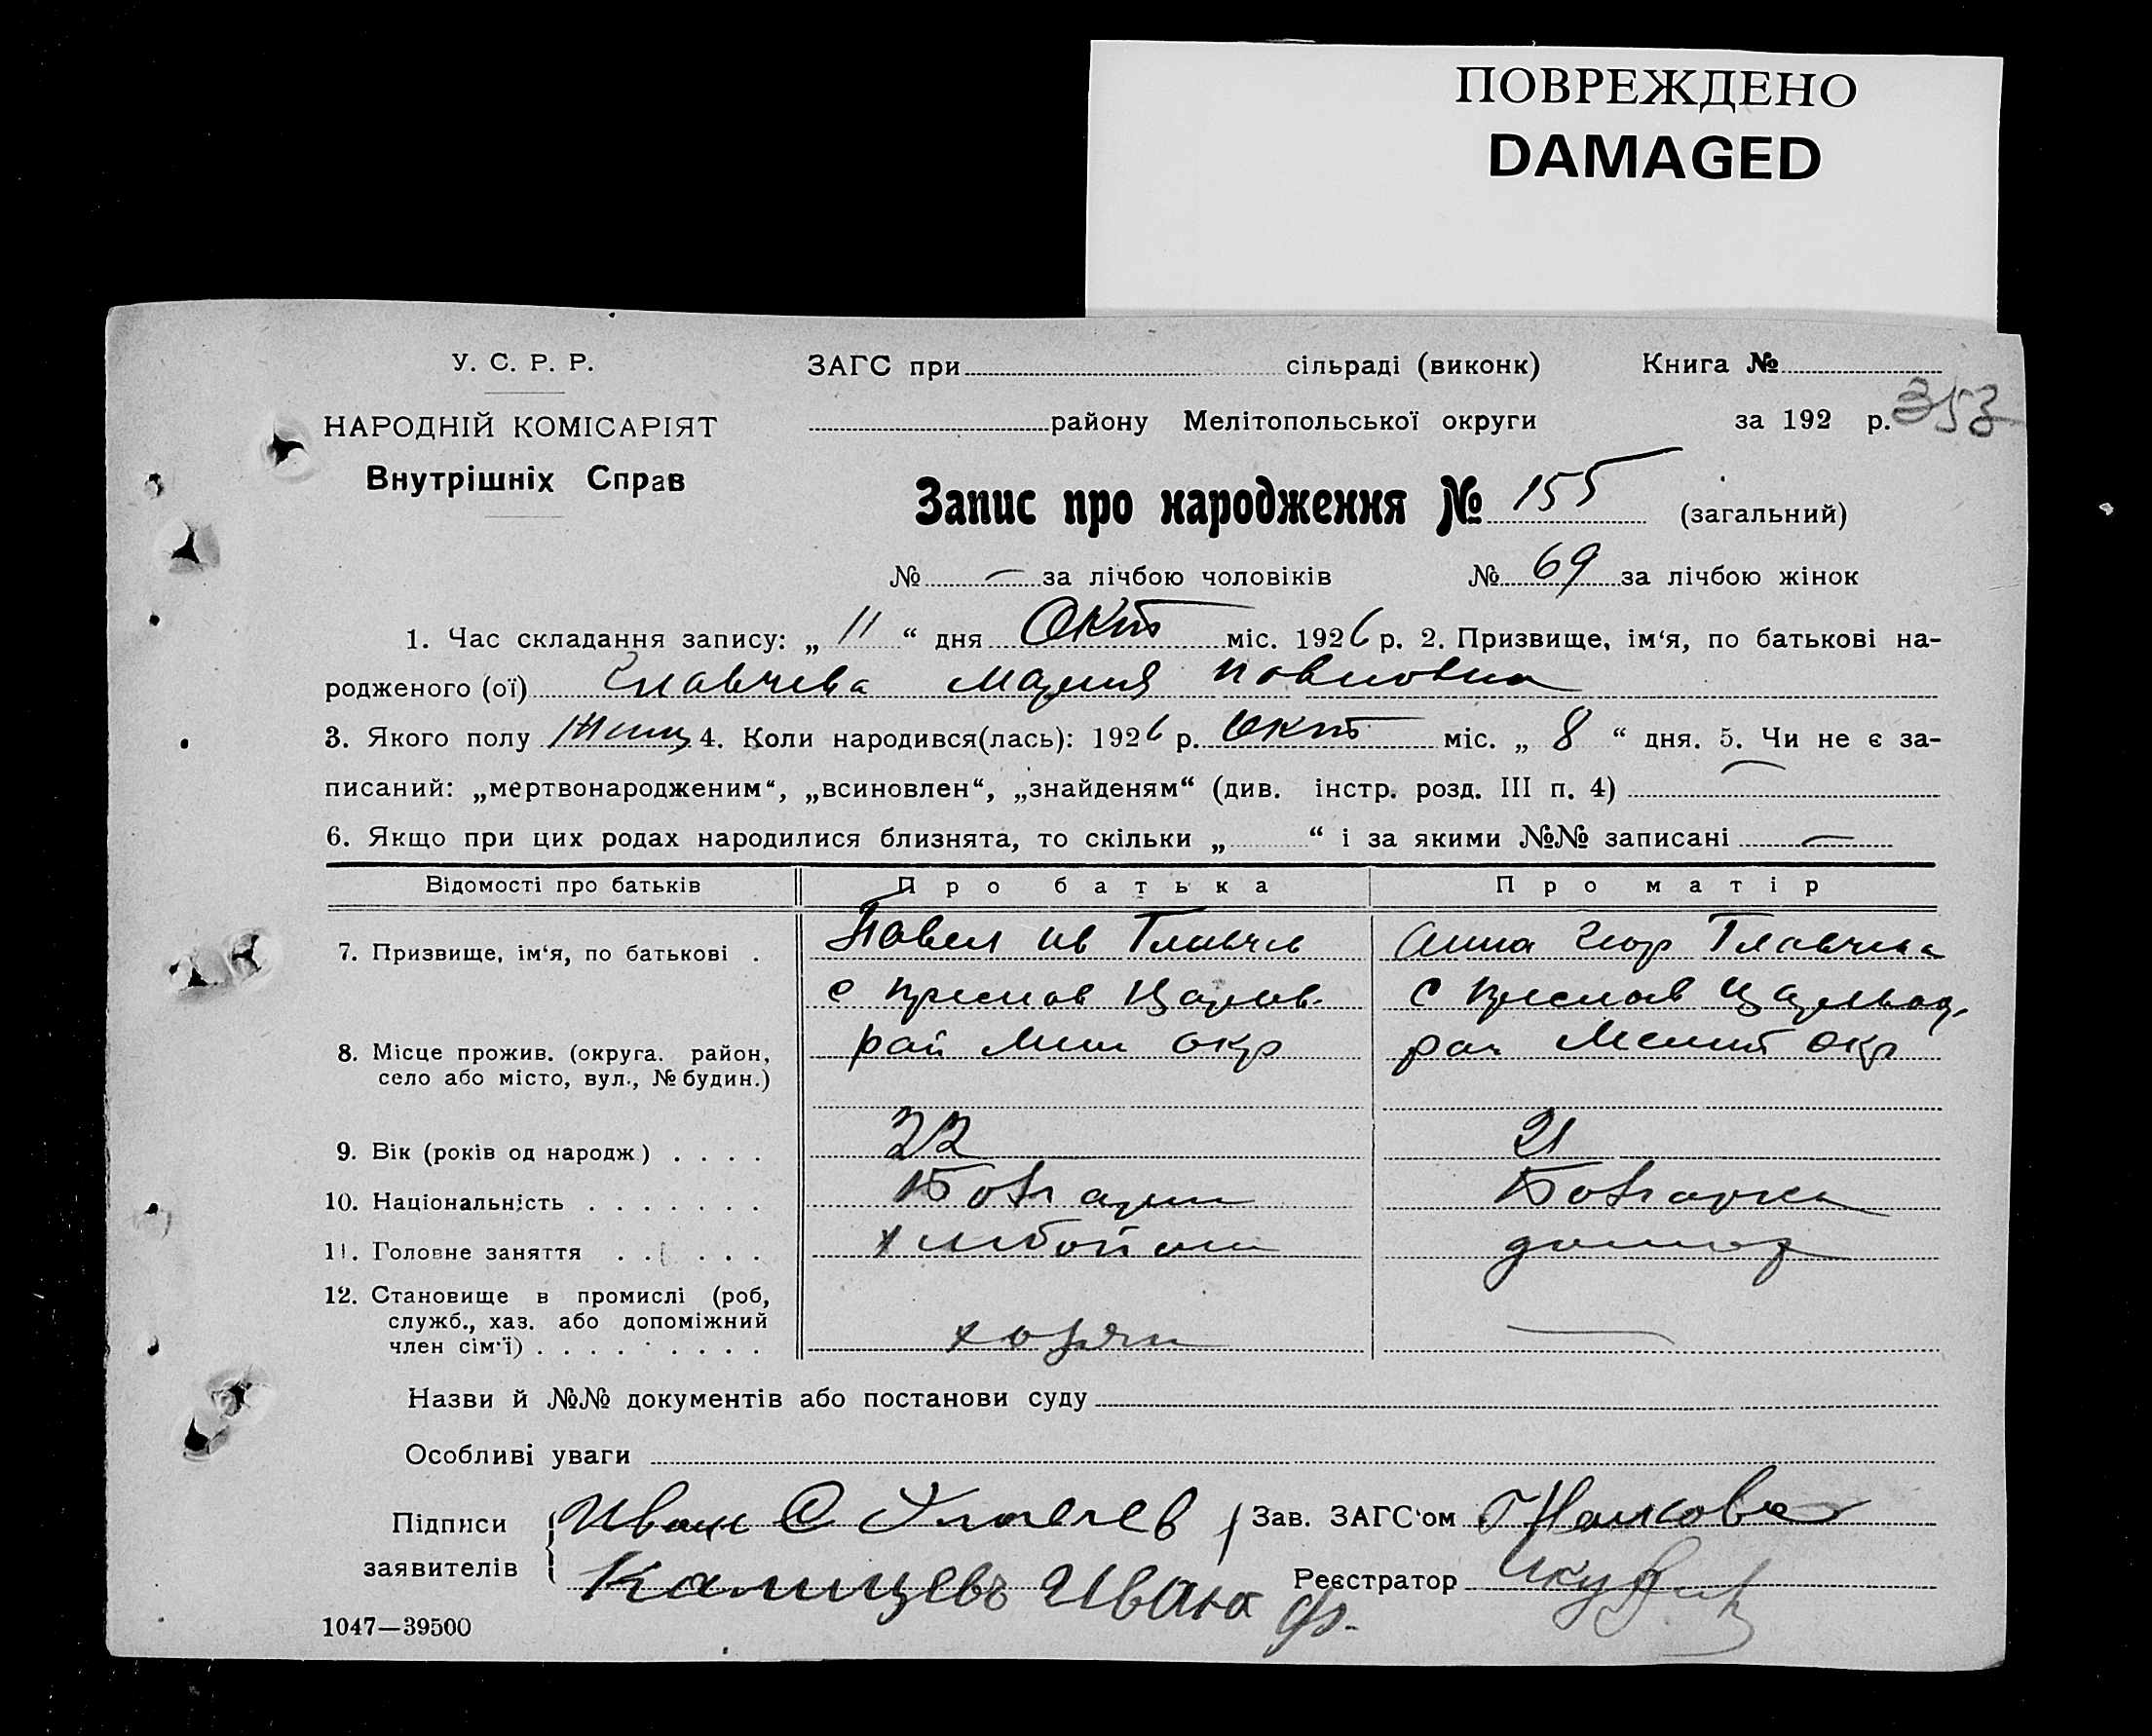 ПОВРЕЖДЕНО
DAMAGED
У. С. Р. Р.
НАРОДНІЙ КОМІСАРІЯТ
Внутрішніх Справ
ЗАГС при сільраді (виконк) Книга №
району Мелітопольської округи за 192 р. 353
Запис про народження № 155 (загальний)
№ — за лічбою чоловіків № 69 за лічбою жінок
1. Час складання запису: „ 11 “ дня Окт міс. 1926 р. 2. Призвище, ім‘я, по батькові на-
родженого (ої) Главчева Мария Павловна
3. Якого полу Женщ 4. Коли народився(лась): 1926 р. Окт міс. „ 8 “ дня. 5. Чи не є за-
писаний: „мертвонародженим“, „всиновлен“, „знайденям“ (див. інстр. розд. III п. 4) —
6. Якщо при цих родах народилися близнята, то скільки „ “ і за якими №№ записані —
Відомості про батьків Про батька Про матір
7. Призвище, ім‘я, по батькові . Павел Ив Главчев Анна Геор Главчева
с Преслав с Преслав
8. Місце прожив. (округа. район, село або місто, вул., № будин.) рай Мел окр рай Мелит окр
9. Вік (років од народж) . . . . 22 21
10. Національність . . . . . . . Болгарин Болгарка
11. Головне заняття . . . . . . хлебопаш домхоз
12. Становище в промислі (роб, служб., хаз. або допоміжний член сім‘ї) . . . . . . . . . хозяин —
Назви й №№ документів або постанови суду
Особливі уваги
Підписи заявителів
Иван С Главчев
Зав. ЗАГС‘ом
Калицевъ Ивана Ф.
Реєстратор
1047—39500